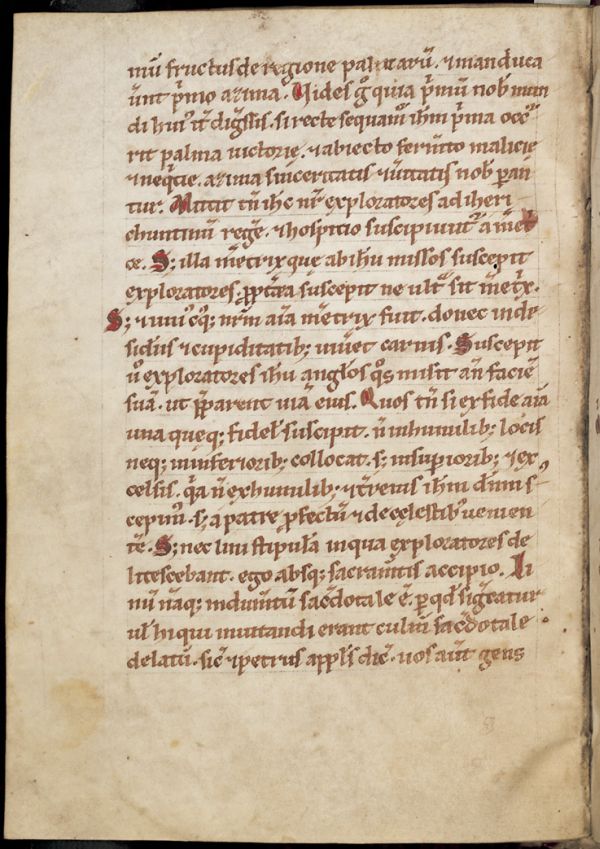 mū fructus de regione palmarū . & manduca
ūnt pͥmo azima . Uides gͦ quia pͥmū nob̄ mun
di huiꝰ itͥ dig̃ssis . si recte sequamͥ ihm̄ pͥma occᵘ
rit palma uictorię . & abiecto fermto malicię
& neq̄tie . azima sinceritatis & ūitatis nob̄ paran
tur . Mittit tn̄ ihc̄ nr̄ exploratores ad iheri
chuntinū regē . & hospitio suscipiuntᵘ a met̄
ce . S; illa met̄rix que ab ihu missos suscepit
exploratores . ꝓpt̄ea suscepit ne ult̄ᵃ sit met̄x .
S; & uniꝰ cͦq; nrm̄ aīa met̄rix fuit . donec in de
sid̄iis & cupiditatib; uiuet carnis . Suscepit
ūͦ exploratores ihu angłos qͦs misit an̄ faciē
suā . ut p̄parent uiā eius . Quos tn̄ si ex fide aīa
una quęq; fidel̄ suscipit . n̄ in humilib; locis
neq; in inferiorib; collocat . s; in supiorib; & ex
celsis . qͣa n̄ ex humilib; & t̄renis ihm̄ dn̄m s
cepimꝰ . s; a patre ꝓfectū & de cęlestibꝰ uenien
tē . S; nec lini stipulā in qua exploratores de
litescebant . ego absq; sacram̄tis accipio . Li
nū nāq; indum̄tū sac̄dotale ē . p qd̄ sig̃catur
ul̄ hi qui mutandi erant cultū sac̄dotale
delatū . sic̄ & petrus appl̄s dic̄ . uos aūt gens